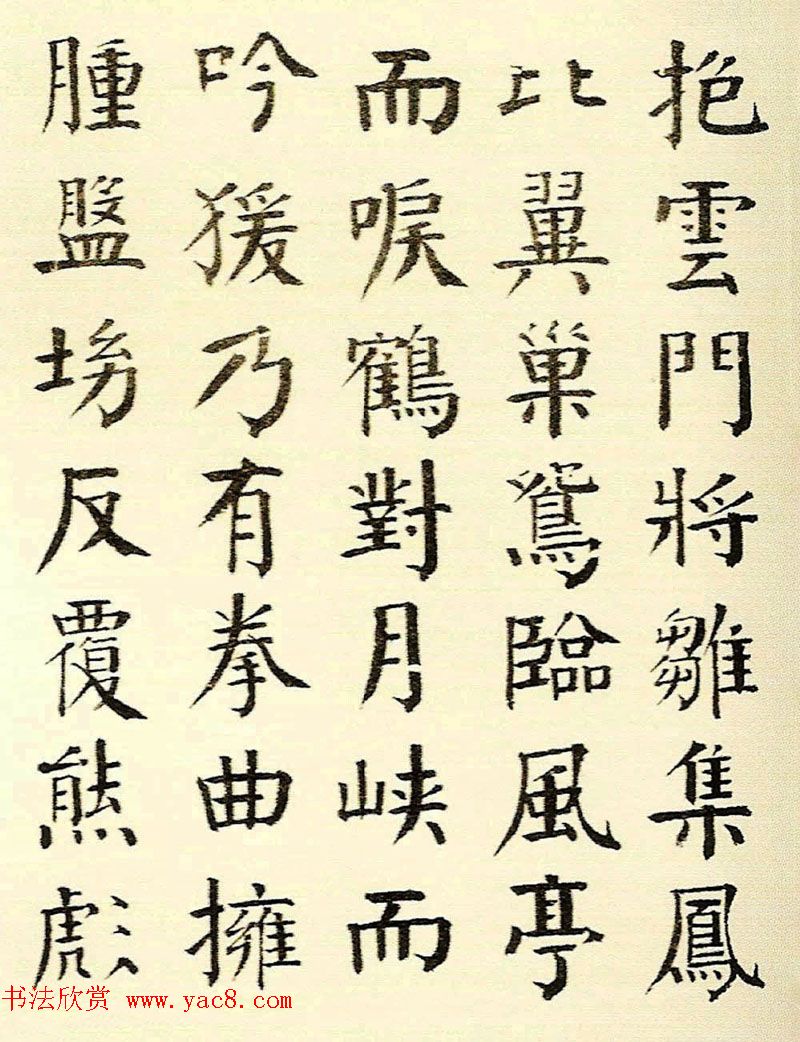 抱雲門將雛集鳳
比翼巢鴛臨風亭
而唳鶴對月峽而
吟猨乃有拳曲擁
腫盤坳反覆熊彪
书法欣赏 www.yac8.com